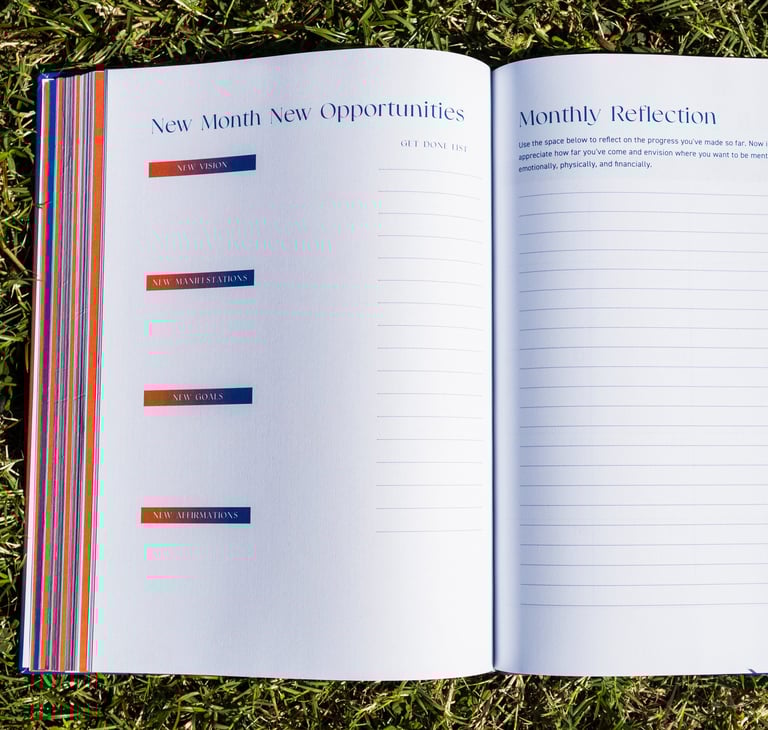 New Month New Opportunities
GET DONE LIST
NEW VISION
NEW MANIFESTATIONS
NEW GOALS
NEW AFFIRMATIONS
Monthly Reflection
Use the space below to reflect on the progress you've made so far. Now i
appreciate how far you've come and envision where you want to be ment
emotionally, physically, and financially.